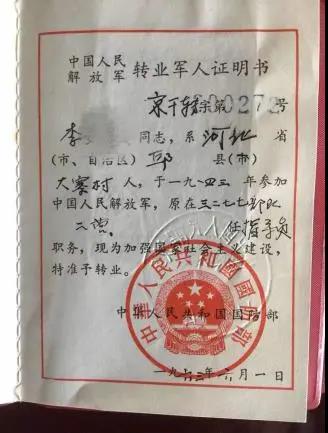 中国人民
解放军 转业军人证明书
京干转字第 号
李 同志，系河北省
(市、自治区) 邱 县(市)
大寨村人，于一九四三年参加
中国人民解放军，原在三二七七部队
二营 任指导员
职务，现为加强国家社会主义建设，
特准予转业。
中华人民共和国国防部
一九六三年六月一日
中华人民共和国国防部